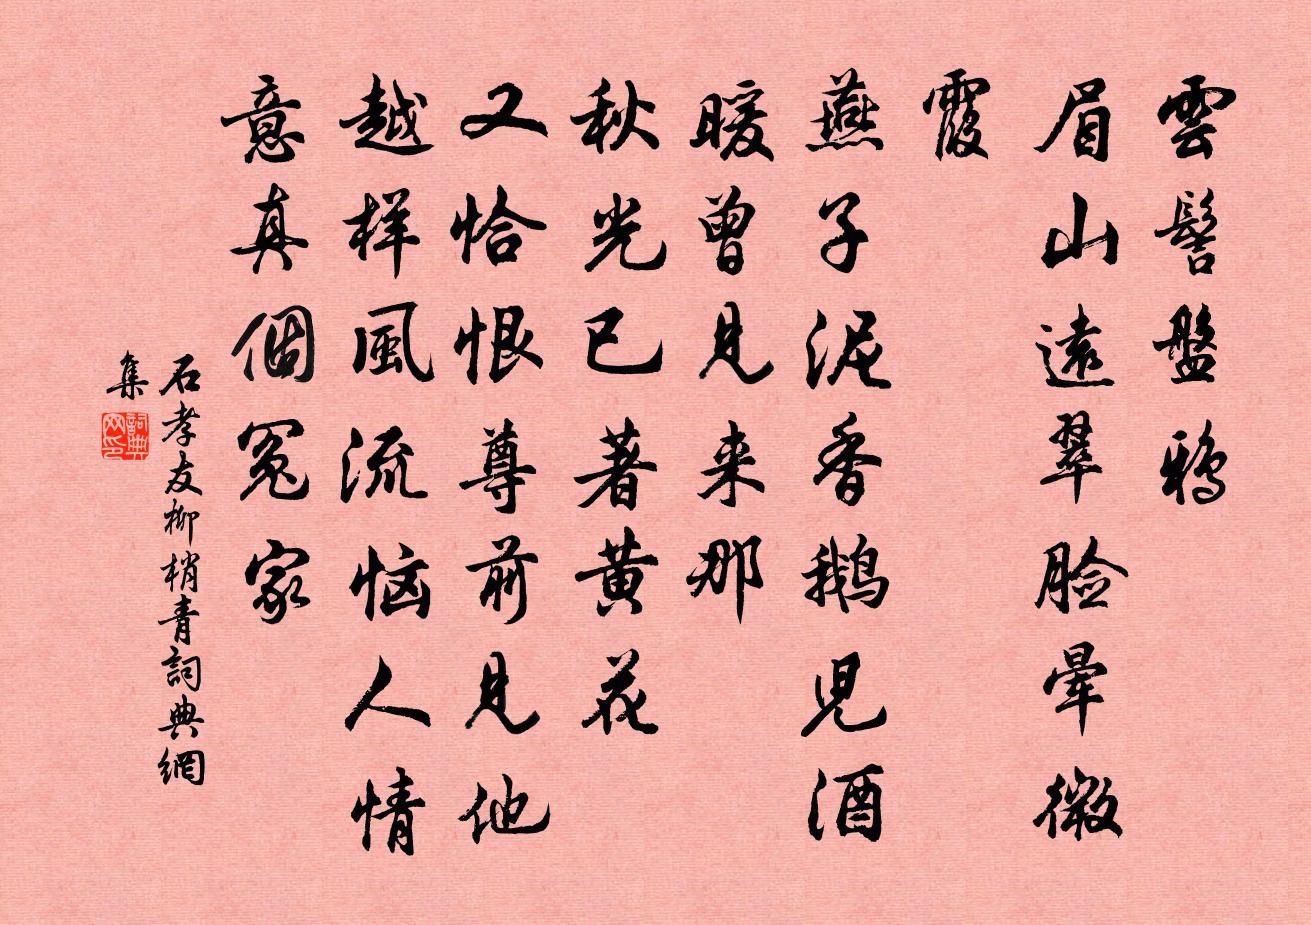 雲髻盤鴉
眉山遠翠脸暈微
霞
燕子泥香鹅児酒
暖曾見来那
秋光已著黄花
又恰恨尊前見他
越样風流恼人情
意真個冤家
石孝友柳梢青詞典網
集
詞典
网印